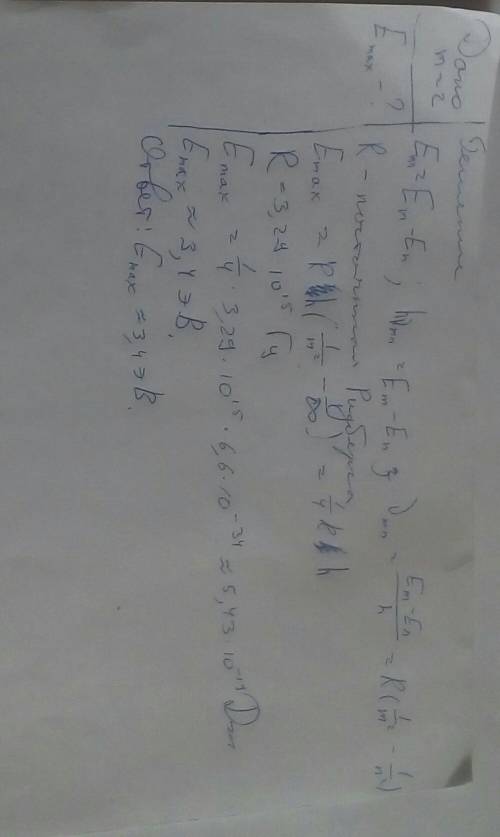 Дано
m=2
E_max - ?
Решение
E_m = E_m - E_n ; hν_mn = E_m - E_n ; ν_mn = (E_m - E_n)/h = R(1/m² - 1/n²)
R - постоянная Ридберга
E_max = Rh(1/m² - 1/∞) = 1/4 Rh
R = 3,29 · 10¹⁵ Гц
E_max = 1/4 · 3,29 · 10¹⁵ · 6,6 · 10⁻³⁴ ≈ 5,43 · 10⁻¹⁹ Дж
E_max ≈ 3,4 эВ.
Ответ: E_max ≈ 3,4 эВ.